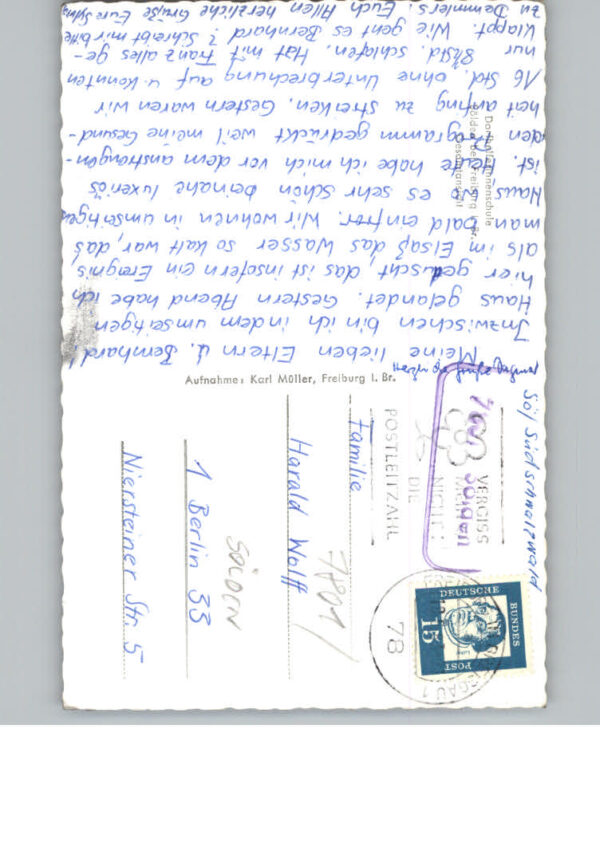 Söl Südschwarzwald
Meine lieben Eltern u. Bernhard!
Inzwischen bin ich in dem umseitigen
Haus gelandet. Gestern Abend habe ich
hier geduscht, das ist insofern ein Ereignis,
als im Elsaß das Wasser so kalt war, das
man bald einfror. Wir wohnen in umseitigen
Haus, wo es sehr schön beinahe luxeriös
ist. Heute habe ich mich vor dem anstrengen-
den Programm gedrückt weil meine Gesund-
heit anfing zu streiken. Gestern waren wir
16 Std. ohne Unterbrechung auf u. konnten
nur 8½ Std. schlafen. Hat mit Franz alles ge-
klappt. Wie geht es Bernhard? Schreibt mir bitte
zu Demmlers Euch Allen herzliche Grüße Eure
Dorfhelferinnenschule
Sölden bei Freiburg i. Br.
Gesamtansicht
Aufnahme: Karl Müller, Freiburg i. Br.
VERGISS
MEIN
NICHT:
DIE
POSTLEITZAHL
7801 Sölden
78
DEUTSCHE
BUNDES
POST
15
Familie
Harald Wolff
7801
1 Berlin 33
SÖLDEN
Niersteiner Str. 5